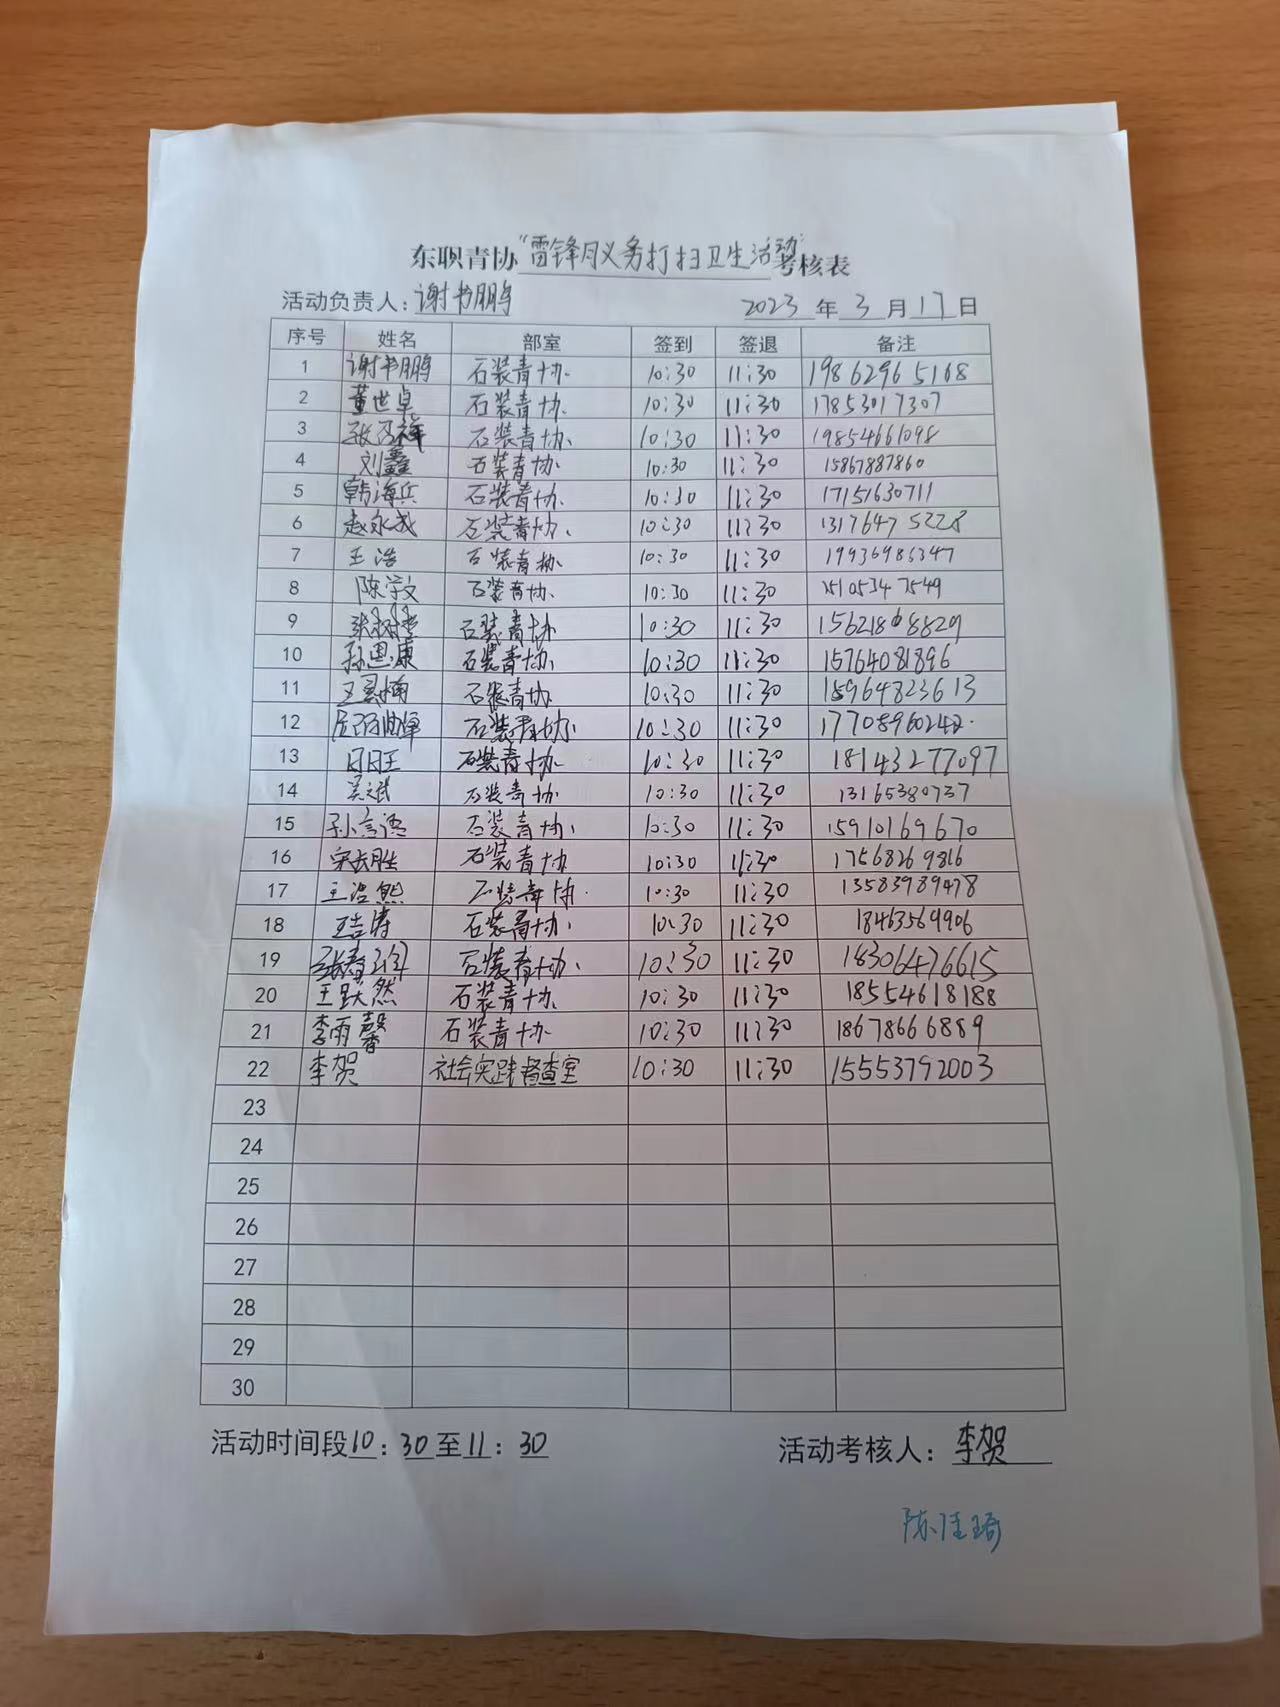 东职青协“雷锋月义务打扫卫生活动”考核表
活动负责人：谢书鹏 2023年3月17日
序号 姓名 部室 签到 签退 备注
1 谢书鹏 石装青协 10:30 11:30 19862965168
2 董世卓 石装青协 10:30 11:30 17853017307
3 石装青协 10:30 11:30 19854661098
4 刘鑫 石装青协 10:30 11:30 15867887860
5 韩海兵 石装青协 10:30 11:30 17151630711
6 赵永我 石装青协 10:30 11:30 13176475228
7 王浩 石装青协 10:30 11:30 19936986347
8 陈学文 石装青协 10:30 11:30 15105347549
9 石装青协 10:30 11:30
10 孙思康 石装青协 10:30 11:30 15764081896
11 石装青协 10:30 11:30 15964823613
12 石装青协 10:30 11:30
13 石装青协 10:30 11:30 18143277097
14 吴斌 石装青协 10:30 11:30 13165380737
15 孙言涵 石装青协 10:30 11:30 15910169670
16 宋长胜 石装青协 10:30 11:30 17568269816
17 王浩熙 石装青协 10:30 11:30 13583989478
18 王吉涛 石装青协 10:30 11:30 18463569906
19 石装青协 10:30 11:30 18306476615
20 王跃然 石装青协 10:30 11:30 18554618188
21 李雨馨 石装青协 10:30 11:30 18678666889
22 李贺 社会实践督查室 10:30 11:30 15553792003
23
24
25
26
27
28
29
30
活动时间段10：30至11：30 活动考核人：李贺
陈佳琦